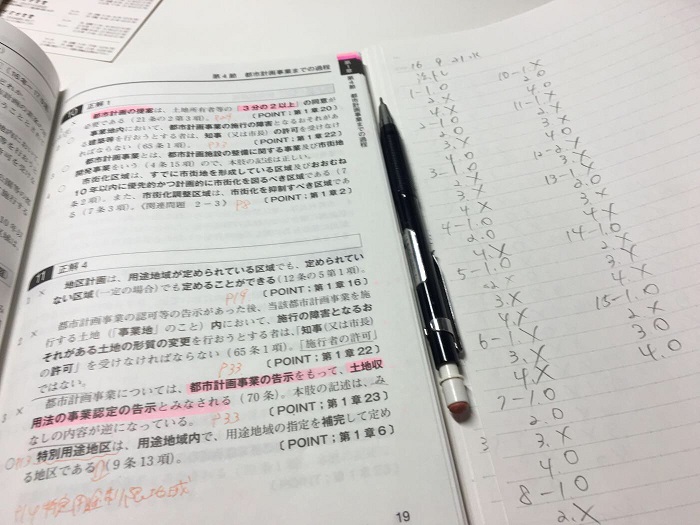 第4節 都市計画事業までの過程
第1章
第4節 都市計画事業までの過程
10 正解1
都市計画の提案は、土地所有者等の「3分の2以上」の同意が
必要である(21条の2第3項)。
〔POINT;第1章20〕
事業地内において、都市計画事業の施行の障害となるおそれがあ
る建築等を行おうとする者は、知事(又は市長)の許可を受けなけ
ればならない(65条1項)。 P33
〔POINT;第1章22〕
都市計画事業とは、都市計画施設の整備に関する事業及び市街地
開発事業をいう(4条15項)ので、本肢の記述は正しい。
市街化区域は、すでに市街地を形成している区域及びおおむね
10年以内に優先的かつ計画的に市街化を図るべき区域である(7
条2項)。また、市街化調整区域は、市街化を抑制すべき区域であ
る(7条3項)。(関連問題 2-3) P8
〔POINT;第1章2〕
11 正解4
1 × 地区計画は、用途地域が定められている区域でも、定められてい
ない区域(一定の場合)でも定めることができる(12条の5第1項)。
P19
〔POINT;第1章16〕
2 × 都市計画事業の認可等の告示があった後、当該都市計画事業を施
行する土地(「事業地」のこと)内において、施行の障害となるお
それがある土地の形質の変更を行おうとする者は、「知事(又は市長)
の許可」を受けなければならない(65条1項)。「施行者の許可」
ではない。 P33
〔POINT;第1章22〕
3 × 都市計画事業については、都市計画事業の告示をもって、土地収
用法の事業認定の告示とみなされる(70条)。本肢の記述は、み
なしの内容が逆になっている。 P33
〔POINT;第1章23〕
特別用途地区は、用途地域内で、用途地域の指定を補完して定め
る地区である(9条13項)。
〔POINT;第1章6〕
19
16 9 21.
1-1.0
2.X
4.X
2-1.0
2.X
3.X
4.0
3-1.0
2.X
3.X
4.X
4-1.0
2.0
4.X
5-1.0
2.X
3.X
4.X
6-1.X
3.X
4.X
7-1.0
2.0
3.X
4.0
8-1.0
2.X
3
10-1.X
2.0
4.0
11-1.X
2.X
3.X
4.0
3.X
13-1.X
3.X
4.X
14-1.0
2.X
3.X
4.X
15-1.0
2.X
3.0
4.0